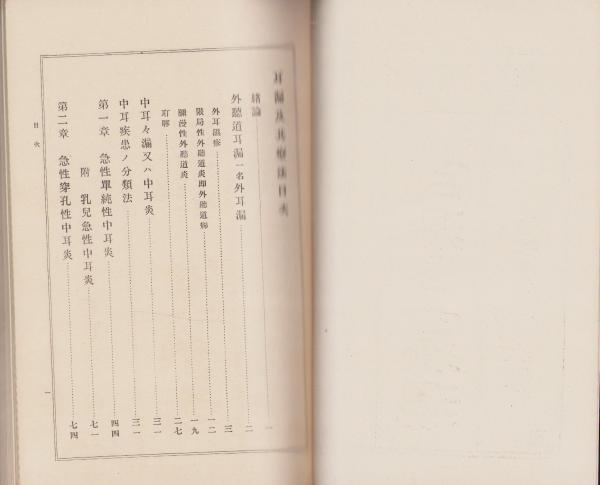 耳漏及其療法目次
緒論 一
外聽道耳漏一名外耳漏 二
外耳濕疹 三
限局性外聽道炎卽外聽道癤 一二
瀰漫性外聽道炎 一九
耵聹 二七
中耳々漏又ハ中耳炎 三一
中耳疾患ノ分類法 三一
第一章 急性單純性中耳炎 四四
附 乳兒急性中耳炎 七一
第二章 急性穿孔性中耳炎 七四
目次
一